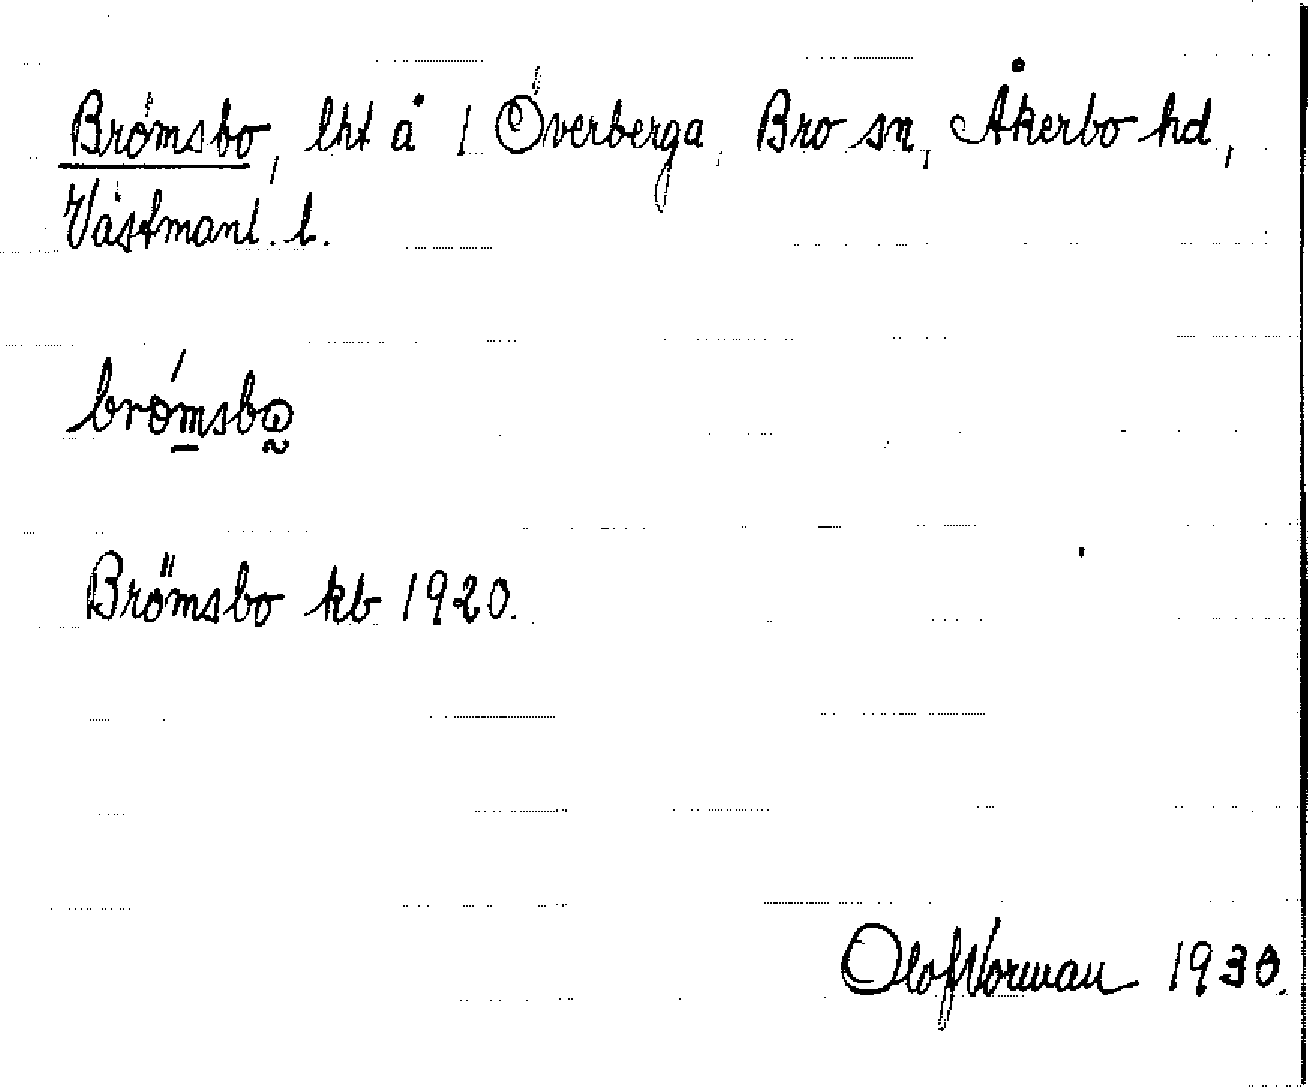 Brömsbo, lht å 1 Överberga, Bro sn, Åkerbo hd,
Västmanl. l.
brömsbo
Brömsbo kb 1920.
Olof Norman 1930.